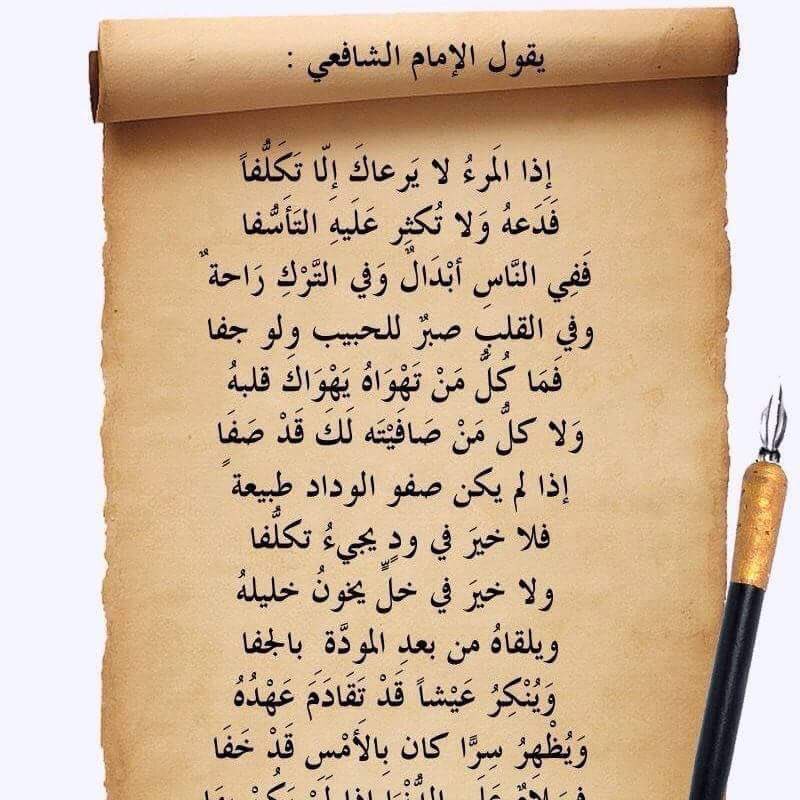 يقول الإمام الشافعي :
إذا المَرءُ لا يَرعاكَ إلّا تَكَلُّفاً
فَدَعهُ وَلا تُكثِر عَلَيهِ التَأَسُّفا
فَفِي النَّاسِ أبْدَالٌ وَفي التَّرْكِ رَاحةٌ
وفي القلبِ صبرٌ للحبيب ولو جفا
فَمَا كُلُّ مَنْ تَهْوَاهُ يَهْوَاكَ قلبهُ
وَلا كلُّ مَنْ صَافَيْتَه لَكَ قَدْ صَفَا
إذا لم يكن صفو الوداد طبيعةً
فلا خيرَ في ودٍ يجيءُ تكلُّفا
ولا خيرَ في خلٍّ يخونُ خليلهُ
ويلقاهُ من بعدِ المودَّة بالجفا
وَيُنْكِرُ عَيْشاً قَدْ تَقَادَمَ عَهْدُهُ
وَيُظْهِرُ سِرًّا كان بِالأَمْسِ قَدْ خَفَا